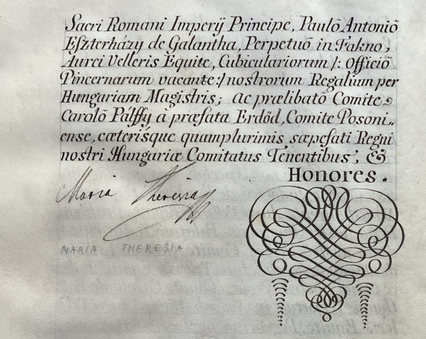 Sacri Romani Imperij Principe, Paulō Antoniō
Eszterházy de Galantha, Perpetuō in Frakno,
Aurei Velleris Equite, Cubiculariorum /: Officiō
Pincernarum vacante :/ nostrorum Regalium per
Hungariam Magistris; ac prælibato Comite
Carolō Palffy à præfata Erdőd, Comite Posoni-
ense, cæterisque quamplurimis sæpefati Regni
nostri Hungariæ Comitatus Tenentibus, &
Honores.
Maria Theresia
MARIA THERESIA